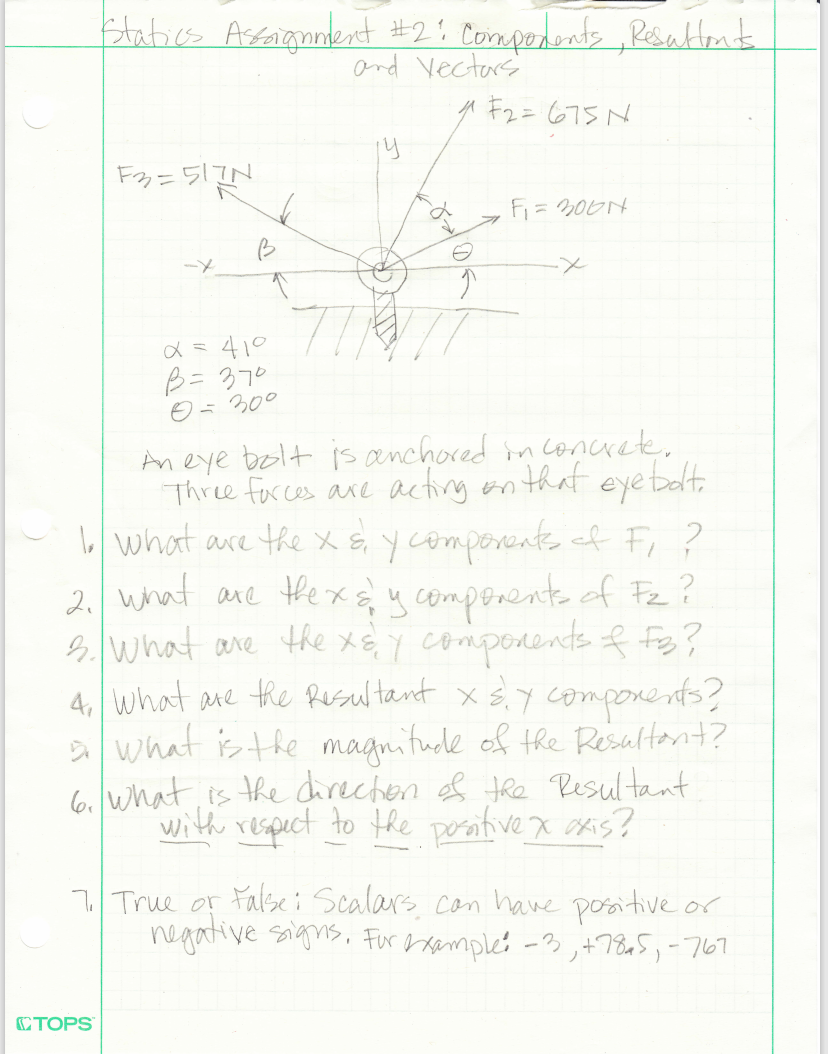 Statics Assignment #2: Components, Resultants
and Vectors
F2 = 675N
y
F3 = 517N
α
F1 = 300N
β
θ
-x
x
α = 41°
β = 37°
θ = 30°
An eye bolt is anchored in concrete.
Three forces are acting on that eyebolt.
1. What are the x & y components of F1 ?
2. What are the x & y components of F2?
3. What are the x & y components of F3?
4. What are the Resultant x & y components?
5. What is the magnitude of the Resultant?
6. What is the direction of the Resultant
with respect to the positive x axis?
7. True or False: Scalars can have positive or
negative signs. For example: -3, +78.5, -767
TOPS